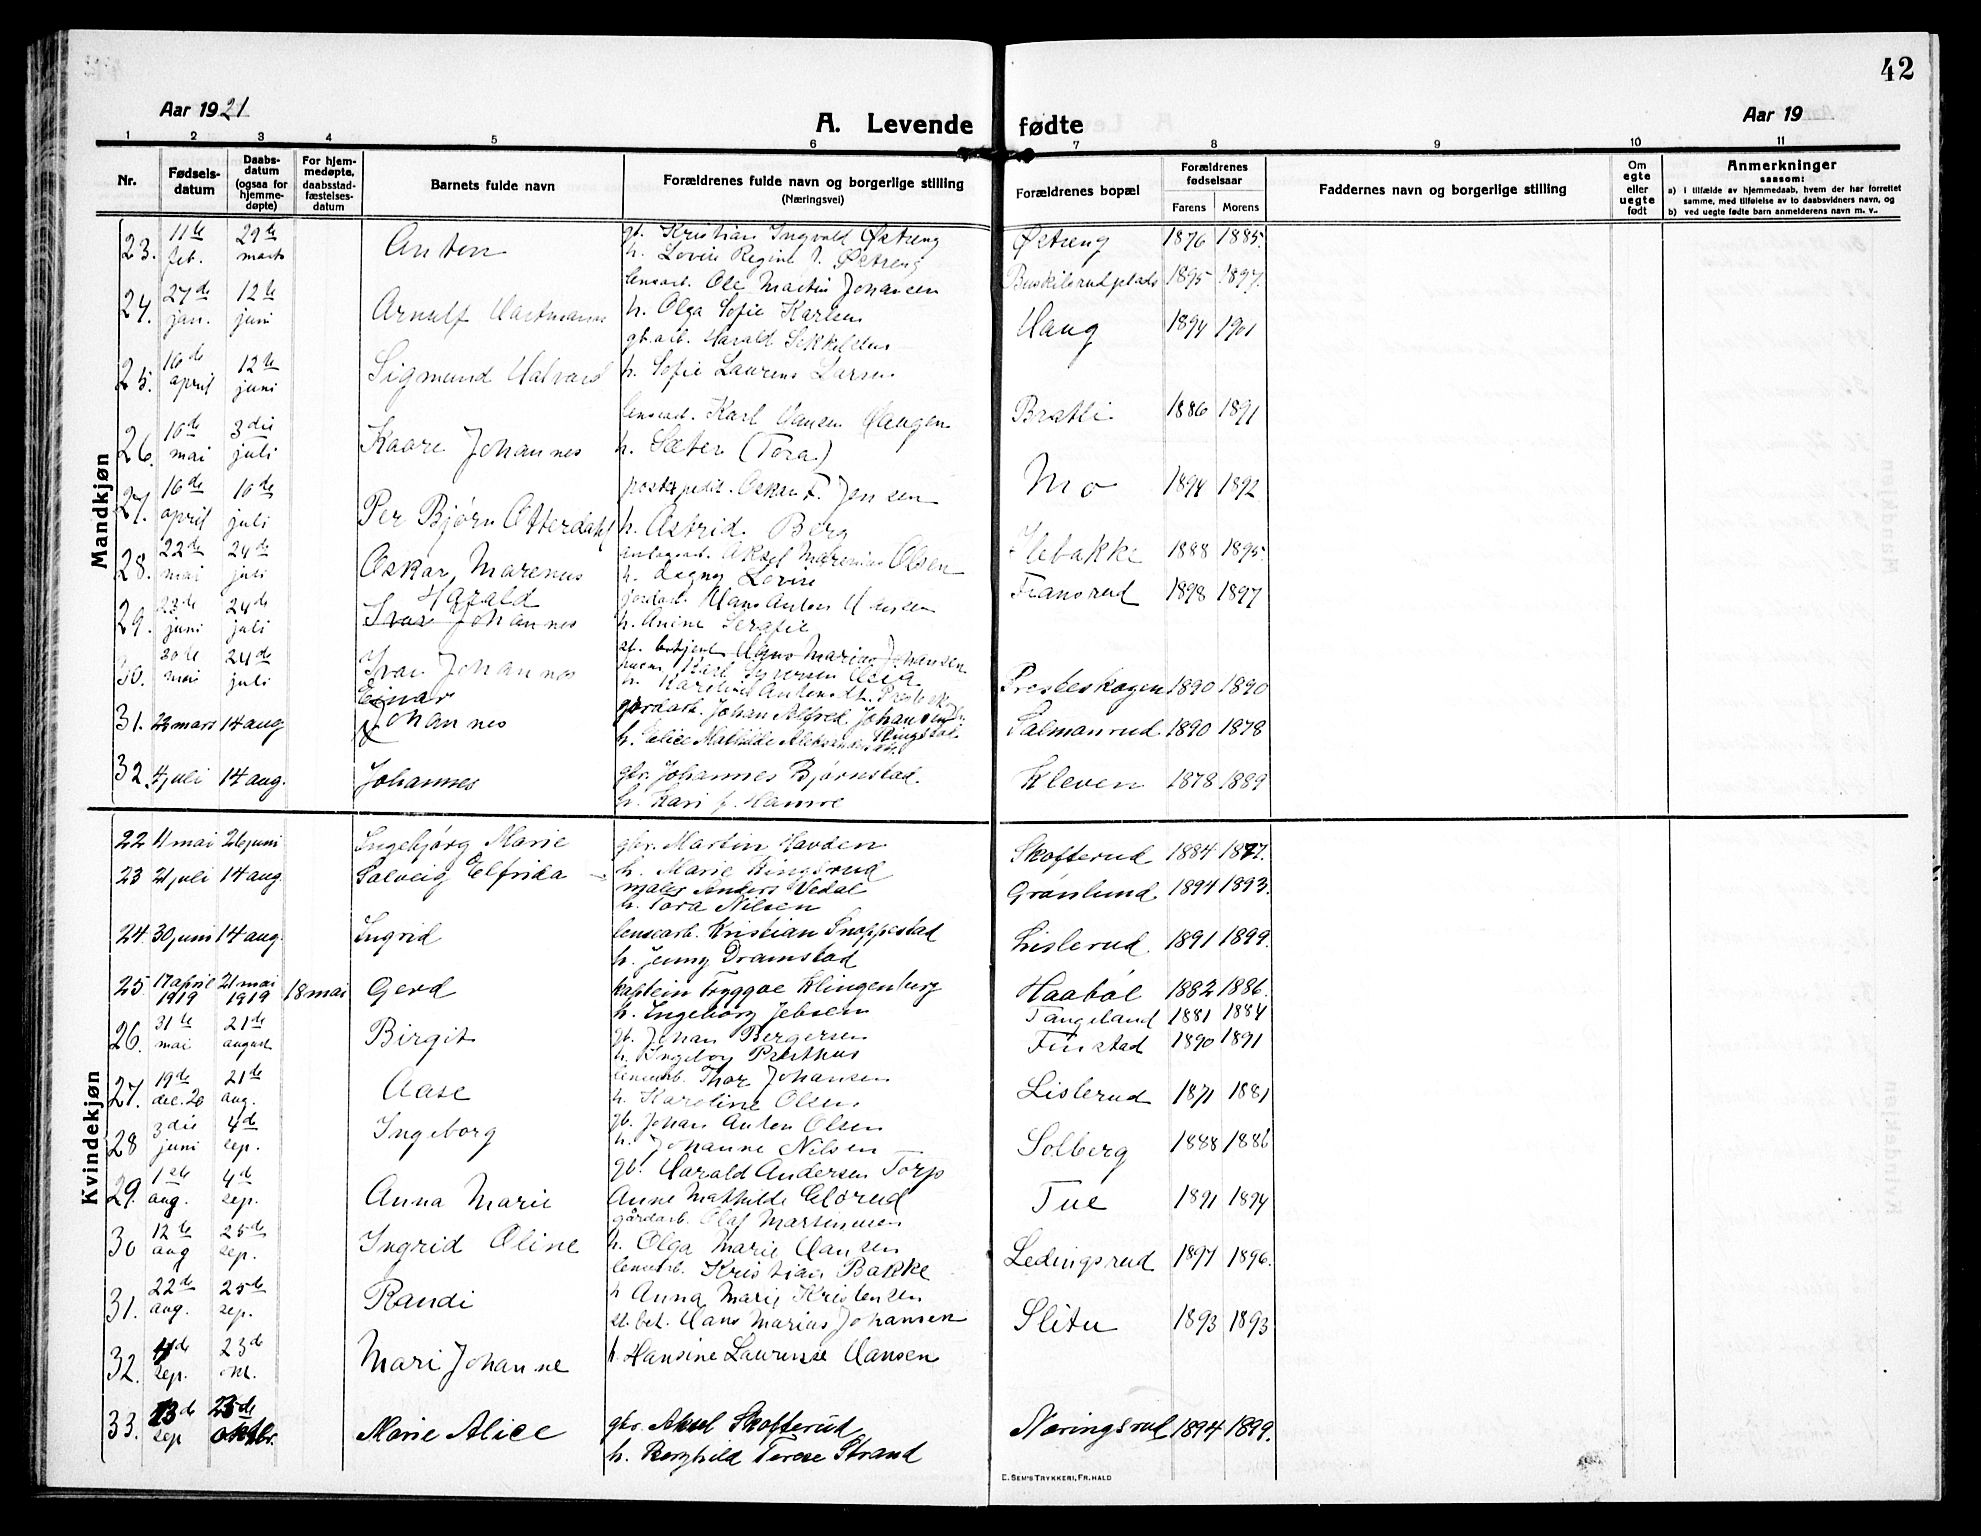 42
Aar 1921
A. Levende fødte
Aar 19
1 2 3 4 5 6 7 8 9 10 11
Nr.
Fødsels-
datum
Daabs-
datum
(ogsaa for
hjemme-
døpte)
For hjem-
medøpte,
daabsstad-
fæstelses-
datum
Barnets fulde navn
Forældrenes fulde navn og borgerlige stilling
(Næringsvei)
Forældrenes bopæl
Forældrenes
fødselsaar
Farens Morens
Faddernes navn og borgerlige stilling
Om
egte
eller
uegte
født
Anmerkninger
saasom:
a) i tilfælde av hjemmedaab, hvem der har forrettet
samme, med tilføielse av to daabsvidners navn, og
b) ved uegte fødte barn anmelderens navn m. v..
Mandkjøn
23. 11te feb. 29de marts Anton gb. Kristian Ingvald Østreng Østreng 1876 1885.
h. Lovise Regine Østreng
24. 27de jan. 12te juni Arnulf Hartmann Ole Martin Johansen 1895 1897.
h. Olga Sofie Karlsen
25. 10de april 12te juni Sigmund Halvard Harald Haug 1894 1901
h. Sofie Laurens Larsen
26. 10de mai 3die juli Kaare Johannes Karl Hansen Haugen Bratli 1886 1891
h. Sæter (Tora)
27. 16de april 10de juli Per Bjørn Otterdahl Oskar F. Jensen Mo 1894 1892
h. Astrid Berg
28. 22de mai 24de juli Oskar Marenus Aksel Marenius Olsen 1888 1895.
h. Dagny Lovise
29. 23de juni 24de juli Harald
Ivar Johannes Hans Anton Hansen Fransrud 1898 1897
h. Anine Serafie
30. 30te mai 24de juli Ivar Johannes Hans Marius Johansen
Karl Syversen Præsteskogen 1890 1890
31. 23 mars 14 aug Einar
Johannes gårdarb. Johan Alfred Johansen Salmanrud 1890 1878
h. Mathilde
32. 4 juli 14 aug. Johannes gbr. Johannes Bjørnstad. Kleven 1878 1889
h. Kari f. Hamre
Kvindekjøn
22 11 mai 26 juni Ingebjørg Marie gbr. Martin Havden Skofterud 1884 1877.
h. Marie Ringsrud
23 21 juli 14 aug. Solveig Elfrida maler Anders Vedal Grønlund 1894 1893.
h. Tora Nilsen
24. 30 juni 14 aug. Ingrid Kristian Snoppestad Lislerud. 1891 1899.
h. Jenny Dramstad
25. 17 april 1919 21 mai 1919 18 mai Gerd kaptein Tryggve Klingenberg Haabøl 1882 1886.
h. Ingeborg Jebsen Tangeland 1881 1884
26. 31te mai 21de august Birgit gb. Johan Bergersen Finstad 1890 1891
h. Ingeborg Presthus
27. 19de dec. 20 21de aug. Aase Thor Johansen Lislerud 1871 1881
h. Karoline Olsen
28 3die juni 4de sep. Ingeborg gb. Johan Anton Olsen Solberg 1888 1886
h. Johanne Nilsen
29. 1ste aug. 4de sep. Anna Marie gb. Harald Andersen Torp Tue 1891 1894
Anne Mathilde
30 12te aug 25de sep. Ingrid Oline gårdarb. Olaf Ledingsrud 1897 1896.
h. Olga Marie Hansen
31. 22de aug. 25de sep. Randi Kristian Bakke Slitu 1893 1893
h Anna Marie Kristensen
32. 4de sep. 23de okt. Mari Johanne Hans Marius Johansen
h. Hansine Laurense Hansen
33. 13de sep 23de oktbr. Marie Alice gbr. Aksel Skofterud Næringsrud 1894 1899.
h. Borghild Terese Strand
E. SEM'S TRYKKERI, FR. HALD